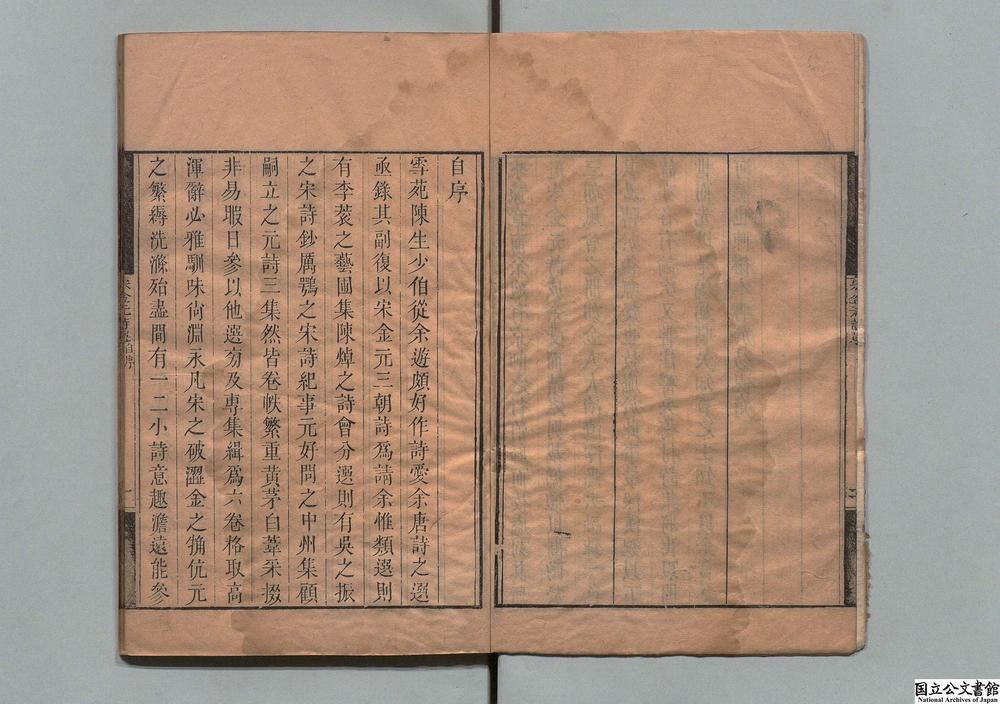 自序
雪苑陳生少伯從余遊頗好作詩愛余唐詩之選
亟錄其副復以宋金元三朝詩爲請余惟類選則
有李蓘之藝圃集陳焯之詩會分選則有吳之振
之宋詩鈔厲鶚之宋詩紀事元好問之中州集顧
嗣立之元詩三集然皆卷帙繁重黄茅白葦采掇
非易暇日參以他選旁及專集緝爲六卷格取高
渾辭必雅馴味尙淵永凡宋之破澀金之犄伉元
之繁縟洗滌殆盡間有一二小詩意趣澹遠能參
宋金元詩選自序
一
国立公文書館
National Archives of Japan